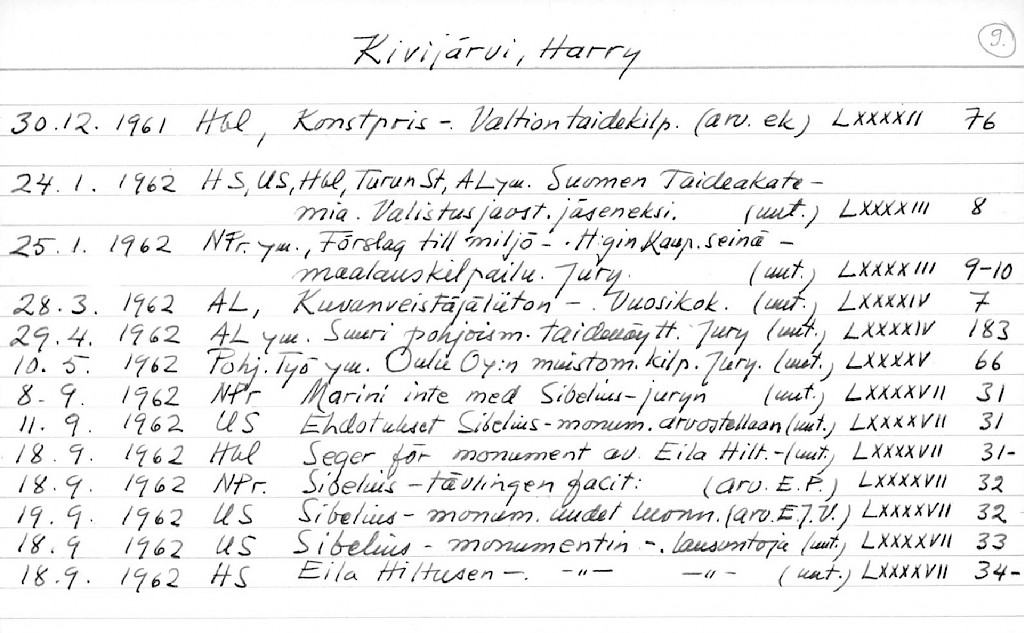 9.
Kivijärvi, Harry
30.12. 1961 Hbl, Konstpris -. Valtion taidekilp. (arv. ek) LXXXXII 76
24. 1. 1962 HS, US, Hbl, Turun St, AL ym. Suomen Taideakate-
mia. Valistusjaost. jäseneksi. (uut.) LXXXXIII 8
25. 1. 1962 NPr. ym., Förslag till miljö -. H:gin Kaup. seinä-
maalauskilpailu. Jury. (uut.) LXXXXIII 9-10
28. 3. 1962 AL, Kuvanveistäjäliiton -. Vuosikok. (uut.) LXXXXIV 7
29. 4. 1962 AL ym. Suuri pohjoism. taidenäytt. Jury (uut.) LXXXXIV 183
10. 5. 1962 Pohj. Työ ym. Oulu Oy:n muistom. kilp. Jury. (uut.) LXXXXV 66
8. 9. 1962 NPr Marini inte med Sibelius-juryn (uut.) LXXXXVII 31
11. 9. 1962 US Ehdotukset Sibelius-monum. arvostellaan (uut.) LXXXXVII 31
18. 9. 1962 Hbl Seger för monument av. Eila Hilt. - (uut.) LXXXXVII 31-
18. 9. 1962 NPr. Sibelius-tävlingen facit: (arv. E.P.) LXXXXVII 32
19. 9. 1962 US Sibelius-monum. uudet luonn. (arv. E.J.V.) LXXXXVII 32
18. 9 1962 US Sibelius-monumentin -. lausuntoja (uut.) LXXXXVII 33
18. 9. 1962 HS Eila Hiltusen -. -"- -"- (uut.) LXXXXVII 34-